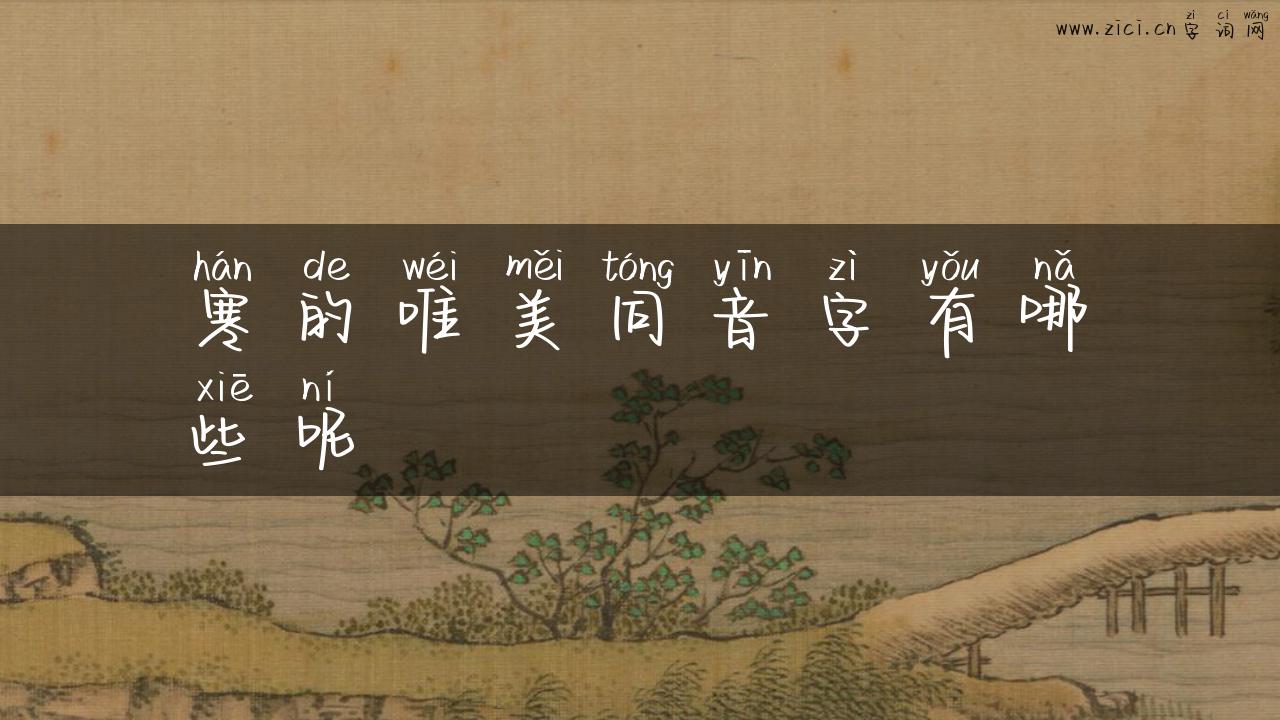 zì cí wǎng
www.zici.cn 字词网
hán de wéi měi tóng yīn zì yǒu nǎ
寒的唯美同音字有哪
xiē ní
些呢